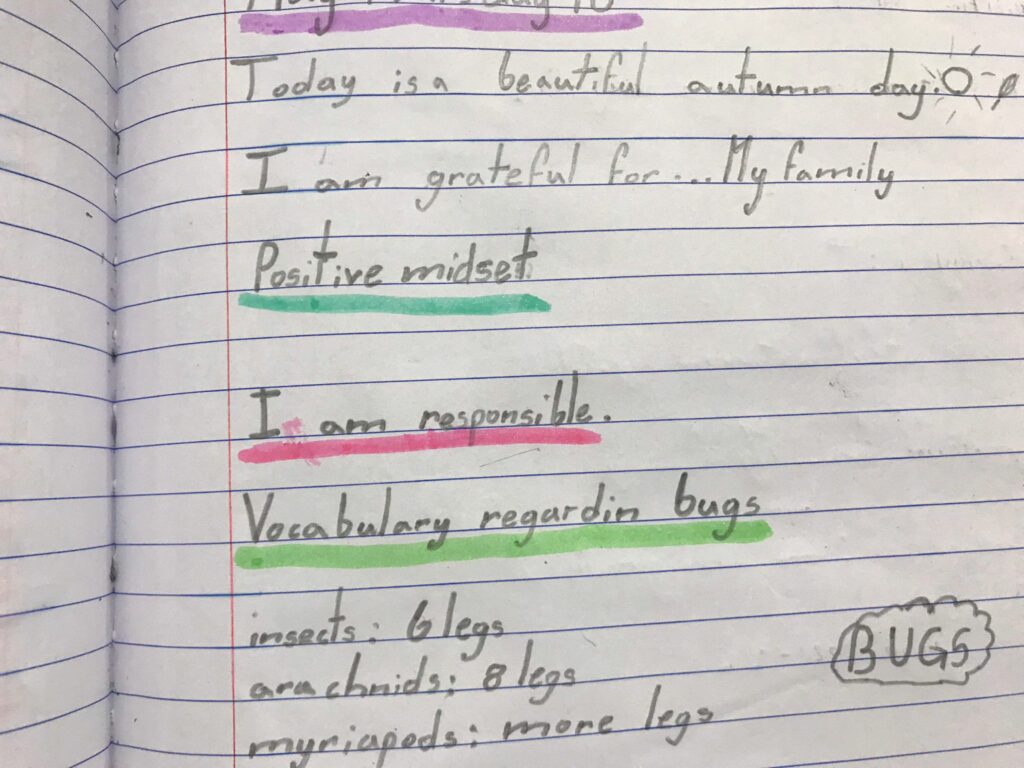 Today is a beautiful autumn day.
I am grateful for... My family
Positive midset
I am responsible.
Vocabulary regardin bugs
insects: 6 legs
arachnids: 8 legs
BUGS
myriapods: more legs